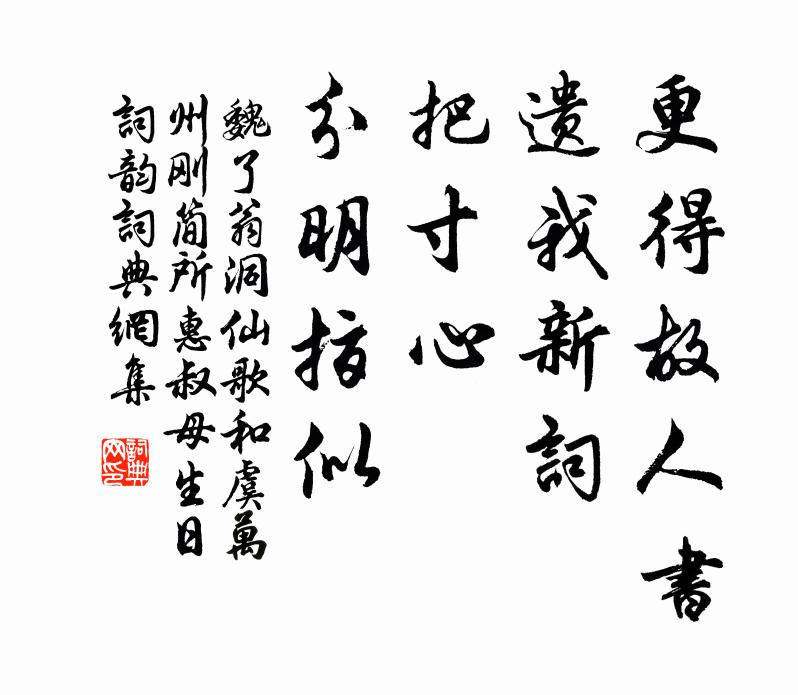 更得故人書
遗我新詞
把寸心
分明指似
魏了翁洞仙歌和虞萬
州刚简所惠叔母生日
詞韵詞典網集
詞典
网印